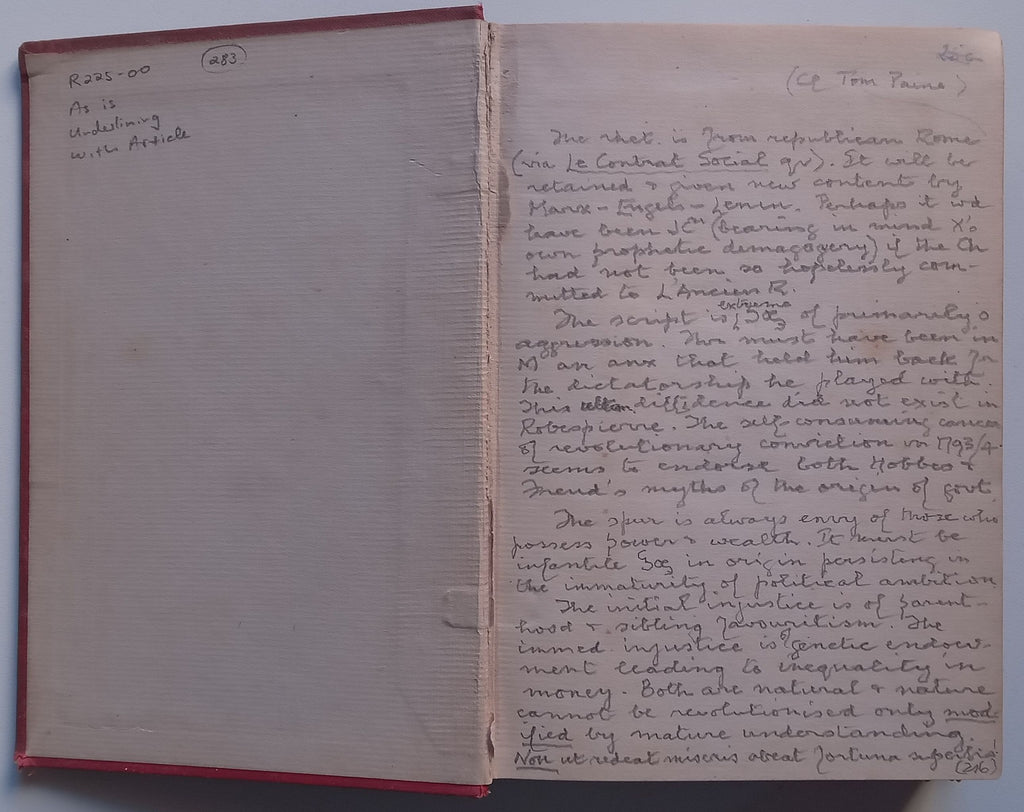 R225-00
283
As is
Underlining
with Article
(Cf Tom Paine)
The rhet. is from republican Rome
(via Le Contrat Social qv). It will be
retained & given new content by
Marx-Engels-Lenin. Perhaps it wd
have been (bearing in mind X's
own prophetic demagogery) if the Ch
had not been so hopelessly com-
mitted to L'Ancien R.
extreme
The script is of primarily
aggression. must have been in
M an anx that held him back fr
the dictatorship he played with.
This diffidence did not exist in
Robespierre. The self-consuming cancer
of revolutionary conviction in 1793/4
seems to endorse both Hobbes &
Freud's myths of the origin of govt
The spur is always envy of those who
possess power & wealth. It must be
infantile in origin persisting in
the immaturity of political ambition
The initial injustice is of parent-
hood & sibling favouritism. The
immed. injustice is of genetic endow-
ment leading to inequality in
money. Both are natural & nature
cannot be revolutionised only mod-
ified by mature understanding.
Non ut redeat miseris abeat fortuna superbis
(216)